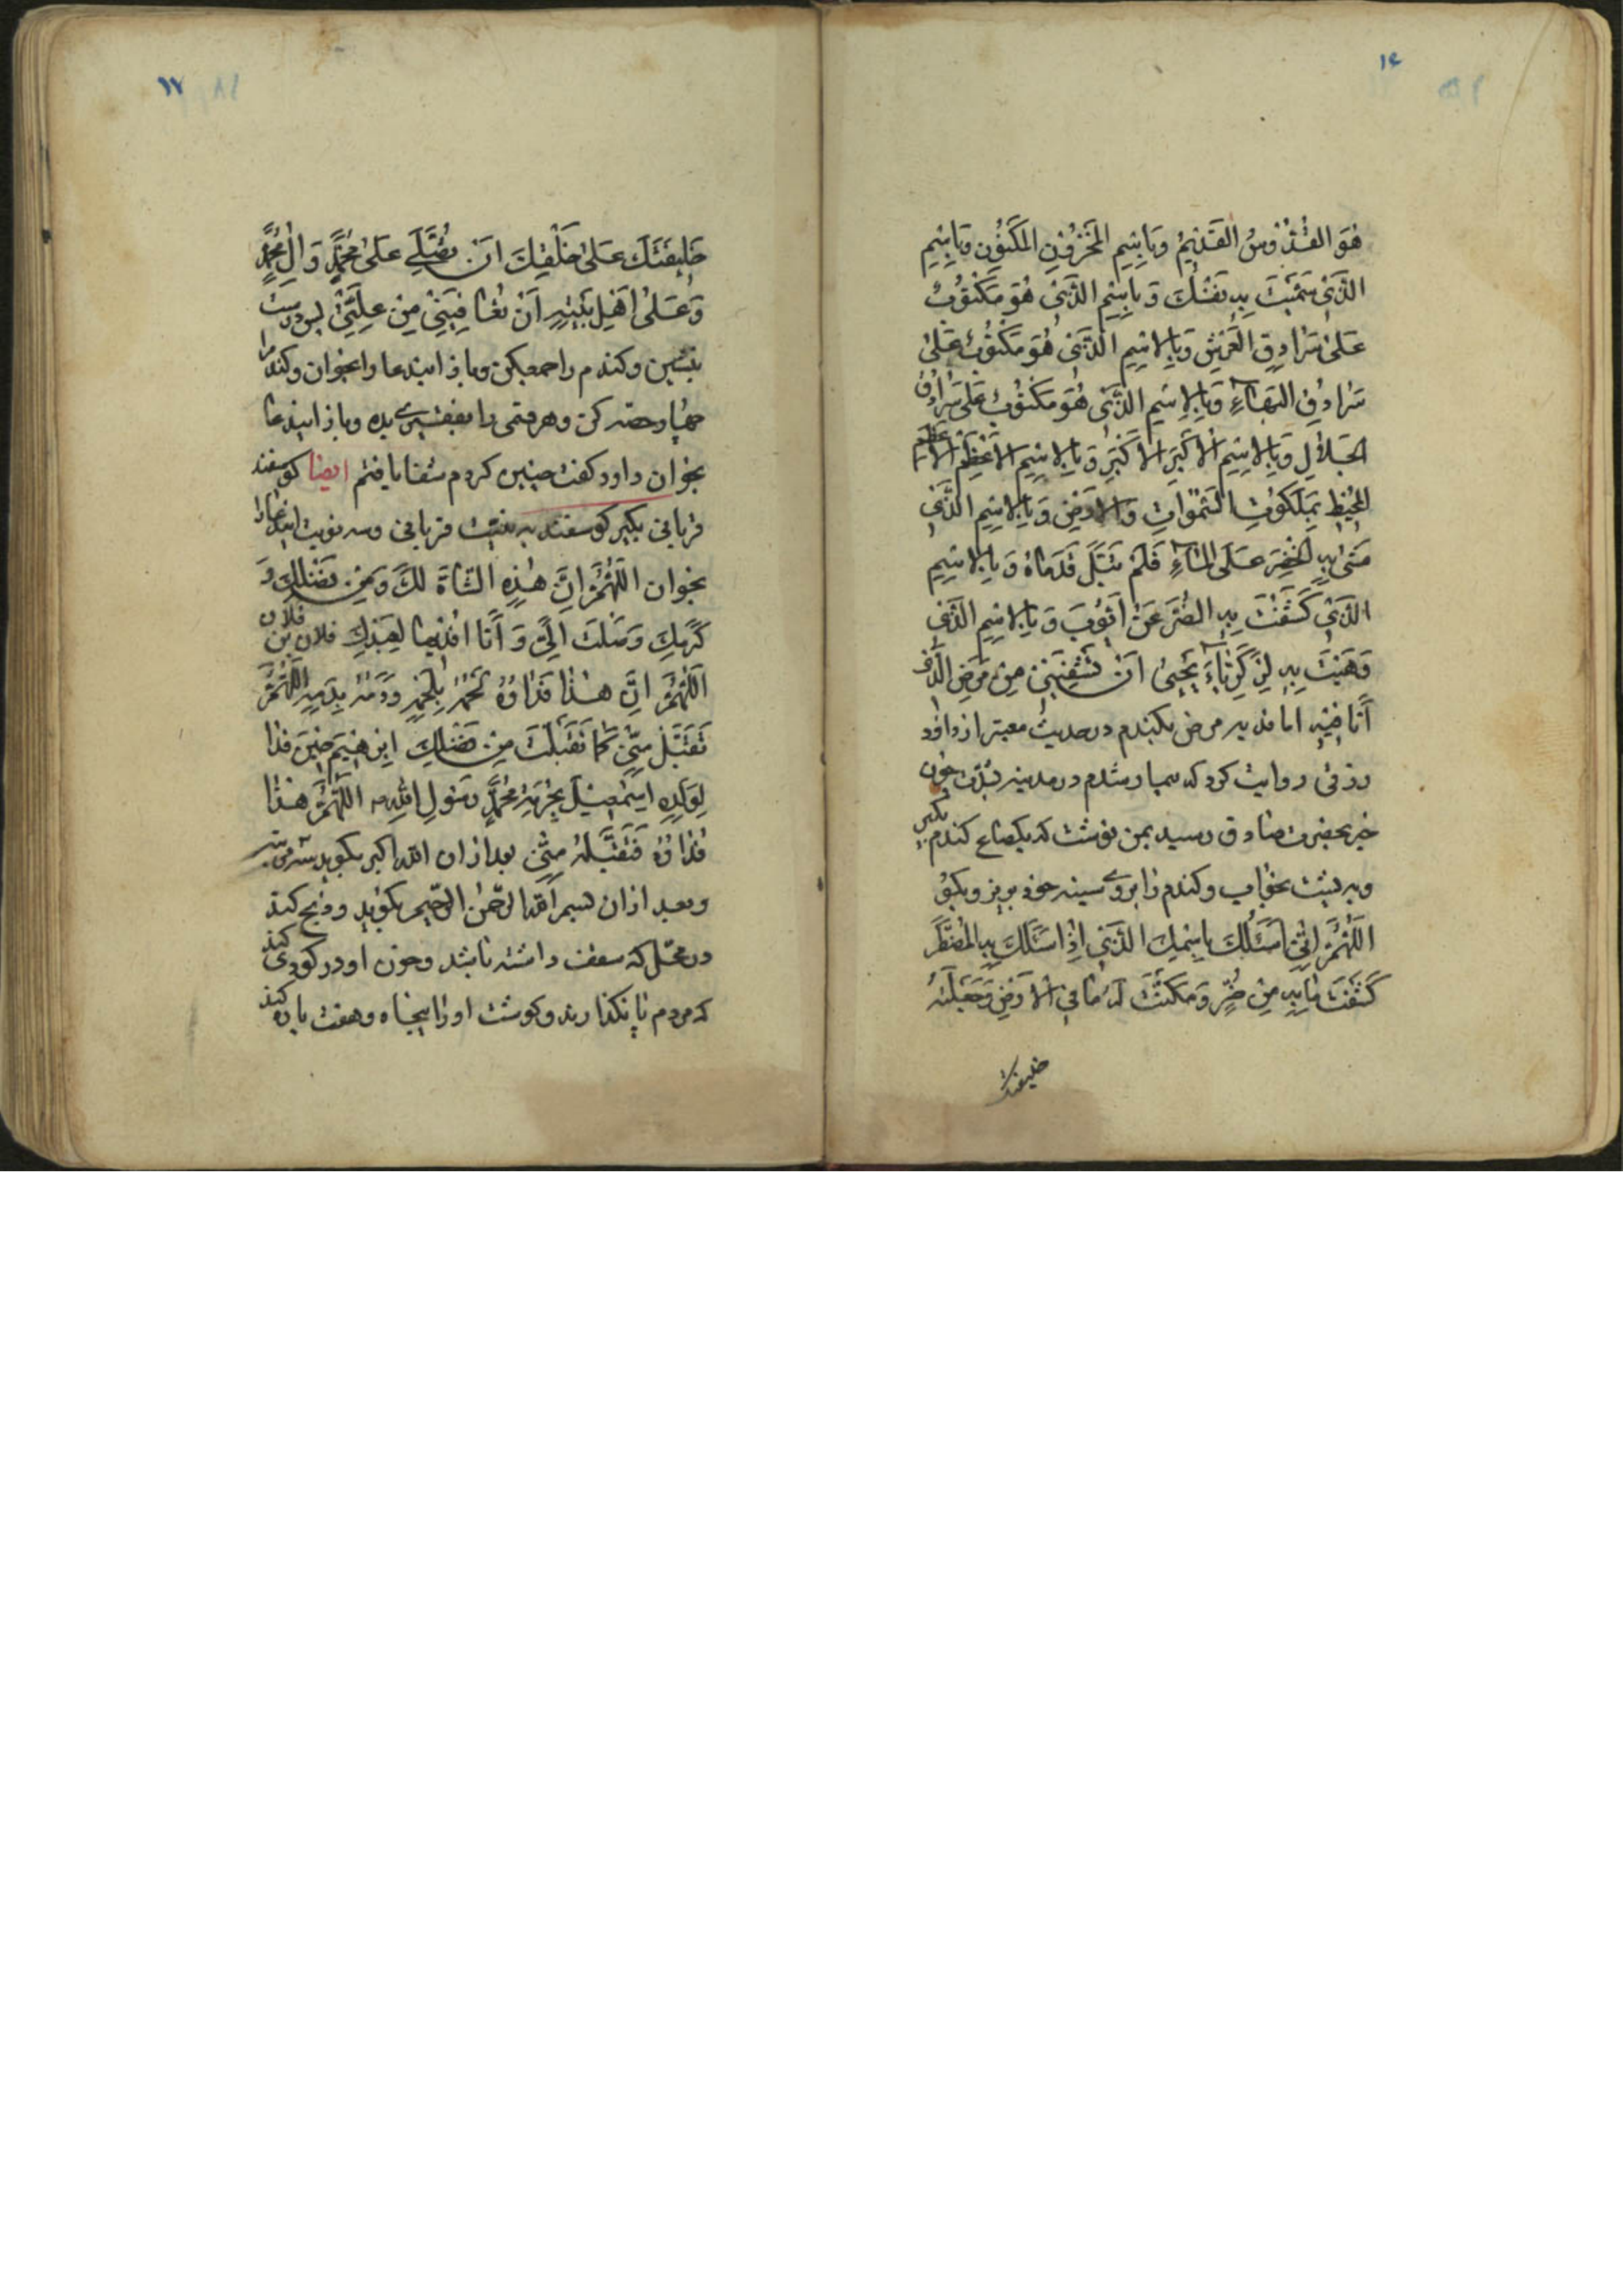 ۱۶
هُوَ القُدُّوسُ القَدِيمُ وَبِاسْمِ المَخْزُونِ المَكنُونِ وَبِاسْمِ
الَّذِي سَمَّيْتَ بِهِ نَفْسَكَ وَبِاسْمِ الَّذِي هُوَ مَكْتُوبٌ
عَلىٰ سُرَادِقِ العَرْشِ وَبِالاسْمِ الَّذِي هُوَ مَكْتُوبٌ عَلىٰ
سُرَادِقِ البَهَاءِ وَبِالاِسْمِ الَّذِي هُوَ مَكْتُوبٌ عَلىٰ سُرَادِقِ
الجَلالِ وَبِالاسْمِ الأكبَرِ الأكبَرِ وَبِالاسْمِ الأعْظَمِ الأعظم
المُحِيطِ بِمَلَكُوتِ السَّمٰوَاتِ وَالأَرْضِ وَبِالاسْمِ الَّذِي
مَشىٰ بِهِ الخِضْرُ عَلَى المَاءِ فَلَمْ تَبْتَلَّ قَدَمَاهُ وَبِالاسْمِ
الَّذِي كَشَفْتَ بِهِ الضُّرَّ عَنْ أَيُّوبَ وَبِالاسْمِ الَّذِي
وَهَبْتَ بِهِ لِزَكَرِيَّاءَ يَحْيىٰ اَنْ تَشْفِيَنِي مِنْ مَرَضِي الَّذِي
أَنَا فِيهِ اما فديه مرض بكندم در حديث معتبر از داود
رزنى روايت كرد كه بيمار شدم در مدينه بشدت چون
خبر بحضرت صادق رسيد بمن نوشت كه يكصاع كندم بكير
وبه پشت بخواب وكندم را بروى سينه خود بريز وبكو
اللّٰهُمَّ اِنِّي اَسْئَلُكَ بِاسْمِكَ الَّذِي اِذَا سَئَلَكَ بِهِ المُضْطَرُّ
كَشَفْتَ مَا بِهِ مِنْ ضُرٍّ وَمَكَّنْتَ لَهُ مَا فِي الأَرْضِ وَجَعَلْتَهُ
خليفتك
۱۷
خَلِيفَتَكَ عَلىٰ خَلْقِكَ اَنْ تُصَلِّيَ عَلىٰ مُحَمَّدٍ وَ اٰلِ مُحَمَّدٍ
وَعَلىٰ اَهْلِ بَيْتِهِ اَنْ تُعَافِيَنِي مِنْ عِلَّتِي پس درست
بنشين وكندم را جمع بكن وباز ايندعا را بخوان وكندم را
چهار حصه كن وهر قسمى را بفقيرى بده وباز ايندعا
بخوان داود كفت چنين كردم شفا يافتم ايضا كوسفند
قربانى بكير كوسفند به نيت قربانى وسه نوبت ايندعا را
بخوان اللّٰهُمَّ اِنَّ هٰذِهِ الشَّاةَ لَكَ وَمِنْ فَضْلِكَ وَ
كَرَمِكَ وَصَلَتْ اِلَيَّ وَ أَنَا اَفْدِيهَا لِعَبْدِكَ فلان بن فلان
اللّٰهُمَّ اِنَّ هٰذَا فَدَاؤُهُ لَحْمُهُ بِلَحْمِهِ وَدَمُهُ بِدَمِهِ اللّٰهُمَّ
تَقَبَّلْ مِنِّي كَمَا تَقَبَّلْتَ مِنْ خَلِيلِكَ اِبْرٰهِيمَ حِينَ فَدَا
لِوَلَدِهِ اِسْمٰعِيلَ بِحُرْمَةِ مُحَمَّدٍ رَسُولِ اللهِ اللّٰهُمَّ هٰذَا
فَدَاؤُهُ فَتَقَبَّلْهُ مِنِّي بعد ازان الله اكبر بكويد سه مرتبه
وبعد ازان بسم الله الرحمن الرحيم بكويد وذبح كند
در محلى كه سقف داشته باشد وخون او در كودى كند
كه مردم پا نكذارند وكوشت او را پنجاه وهفت پاره كند